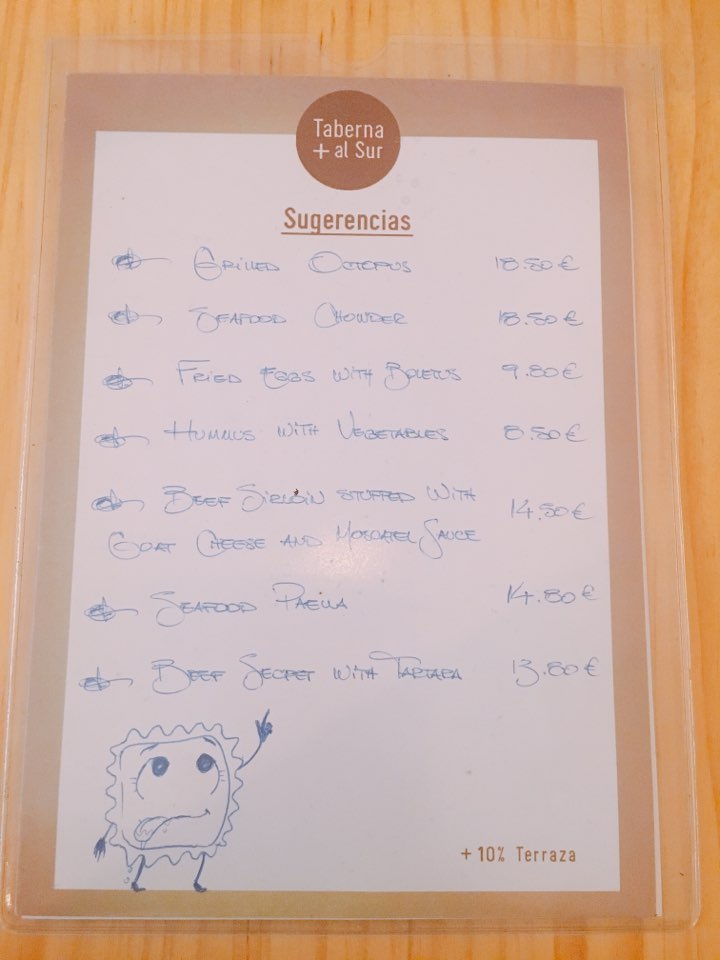 Taberna
+ al Sur
Sugerencias
GRILLED OCTOPUS 18.50€
SEAFOOD CHOWDER 18.50€
FRIED EGGS WITH BOLETUS 9.80€
HUMMUS WITH VEGETABLES 8.50€
BEEF SIRLOIN STUFFED WITH 14.50€
GOAT CHEESE AND MOSCATEL SAUCE
SEAFOOD PAELLA 14.80€
BEEF SECRET WITH TARTARA 13.80€
+ 10% Terraza